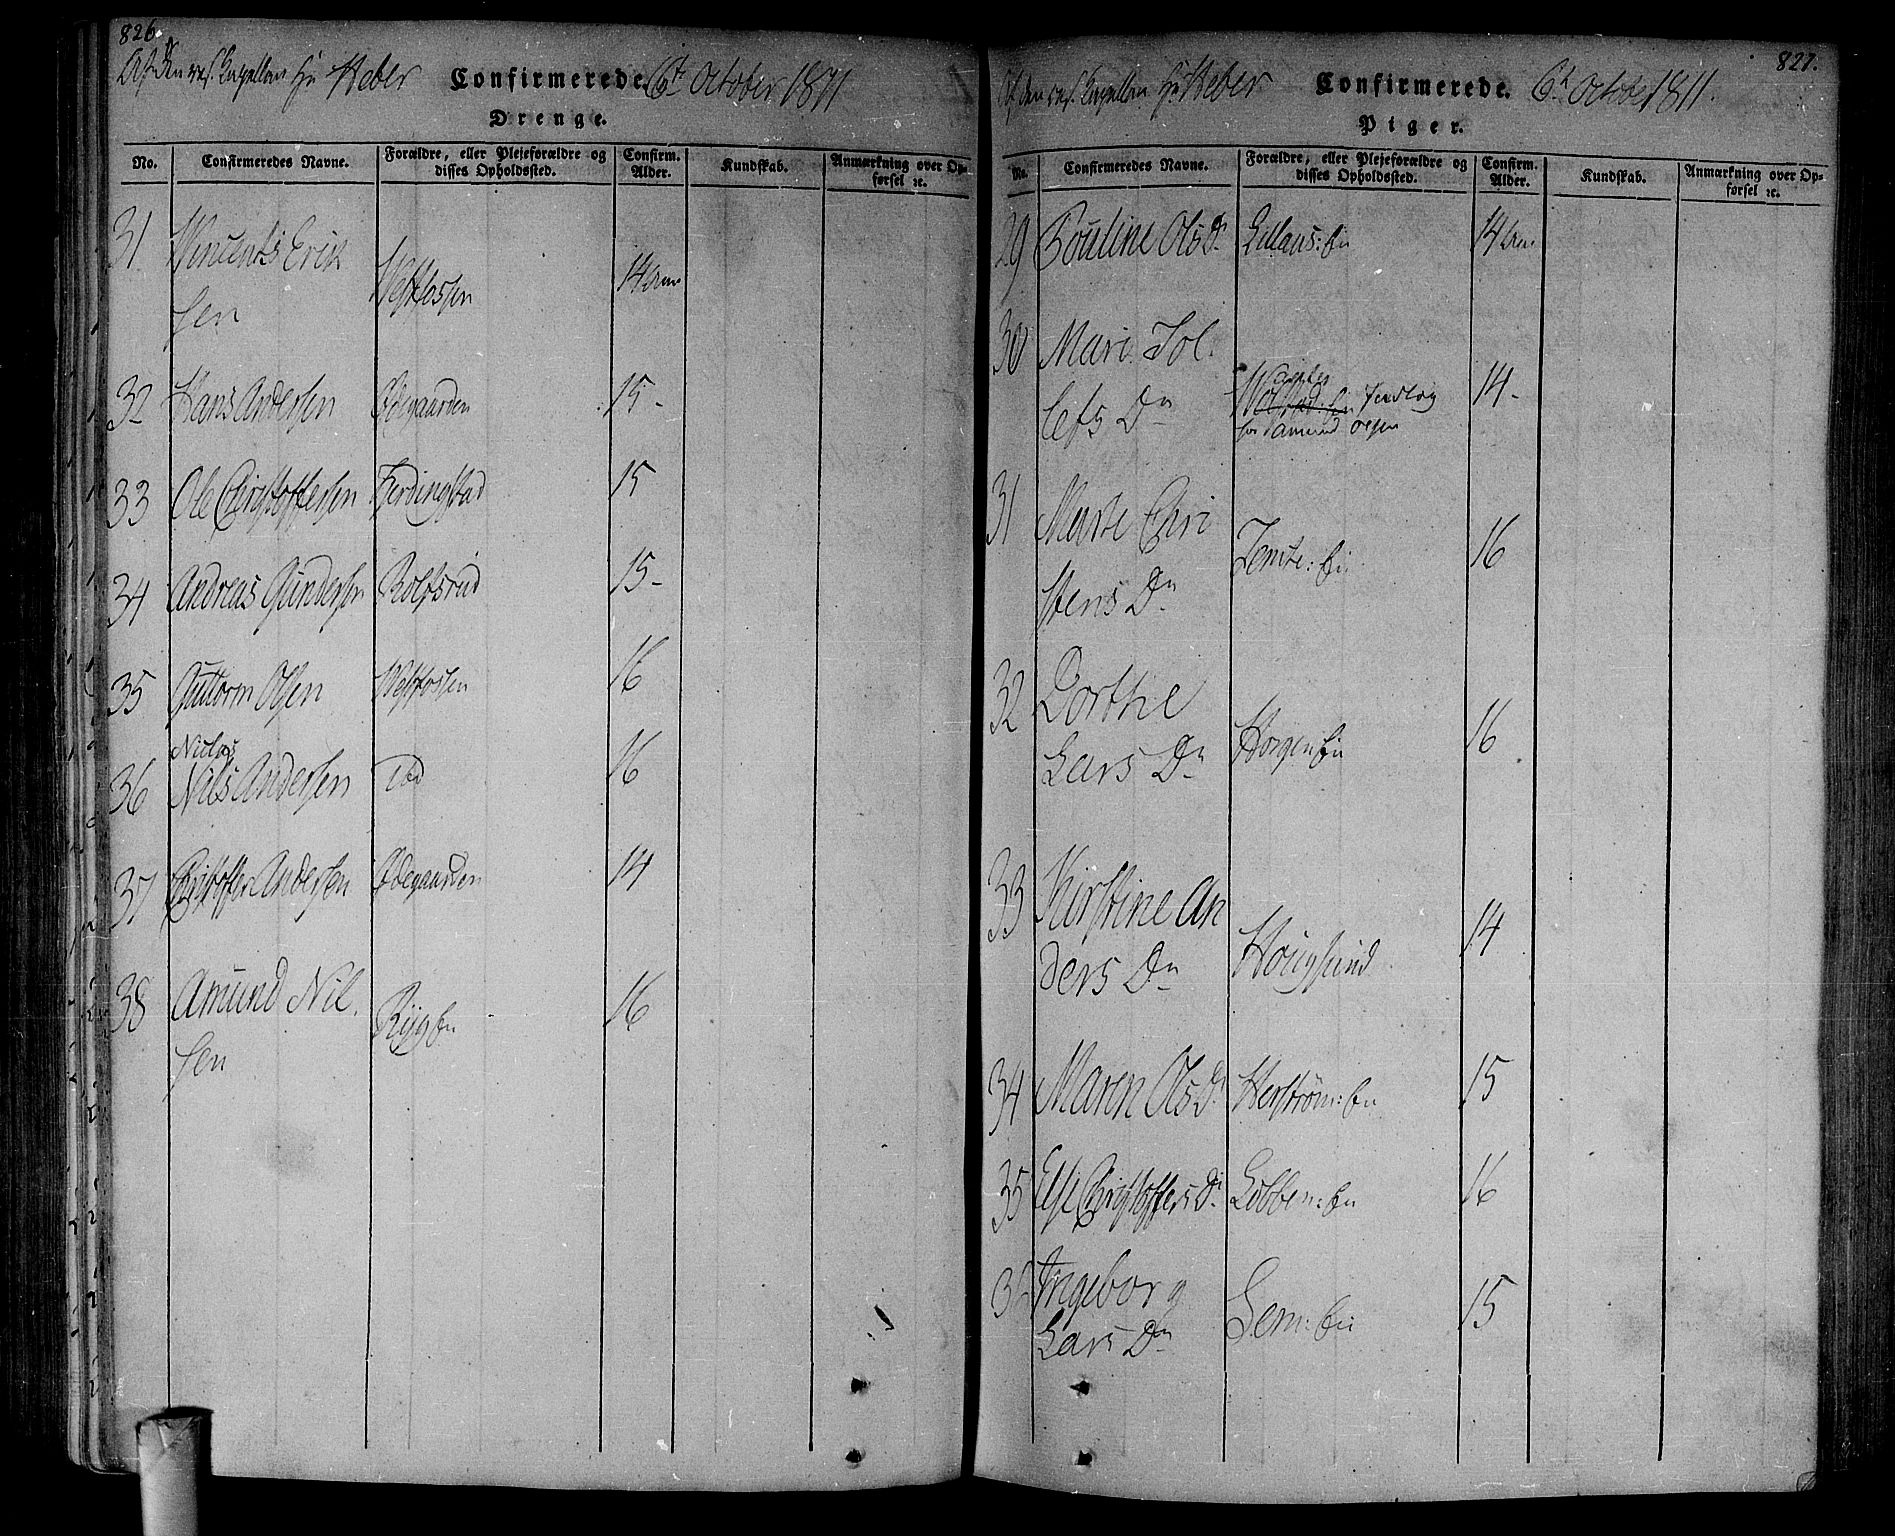 826.
Af den res. Capellan Hr Heber Confirmerede 6te October 1811
Drenge.
No. Confirmeredes Navne. Forældre, eller Plejeforældre og disses Opholdssted. Confirm. Alder. Kundskab. Anmærkning over Opførsel ꝛc.
31 Vincents Erik
sen Westfossen 14 Aar
32 Hans Andersen Ødegaarden 15-
33 Ole Christoffersen Ferdingstad 15
34 Andreas Gundersen Rolfsrud 15-
35 Guttorm Olsen Westfossen 16
Niclas
36 Nils Andersen Ibd 16
37 Christoffer Andersen Ødegaarden 14
38 Amund Nil
sen Rygh 16
827.
Af den res. Capellan Hr Heber Confirmerede. 6te October 1811.
Piger.
No. Confirmeredes Navne. Forældre, eller Plejeforældre og disses Opholdssted. Confirm. Alder. Kundskab. Anmærkning over Opførsel ꝛc.
29 Bouline Ols Dr 14 Aar
30 Mari Tol
lefs Dr 14-
hos Amund
31 Marte Chri
stens Dr Temte: 16
32 Dorthe
Lars Dr Horgen 16
33 Kirstine An
ders Dr Hougsund 14
34 Maren Ols Dr Herstrøm: 15
35 Else Christoffers Dr Lobben: 16
36 Ingeborg
Lars Dr Sem: 15